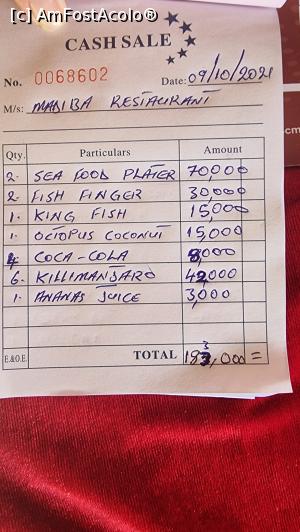 [c] AmFostAcolo®
CASH SALE
No. 0068602 Date: 09/10/2021
M/s: MADIBA RESTAURANT
Qty. Particulars Amount
2. SEA FOOD PLATER 70000
2. FISH FINGER 30,000
1. KING FISH 15,000
1. OCTOPUS COCONUT 15,000
4 COCA-COLA 8,000
6. KILLIMANJARO 42,000
1. ANANAS JUICE 3,000
E.&O.E. TOTAL 183,000=